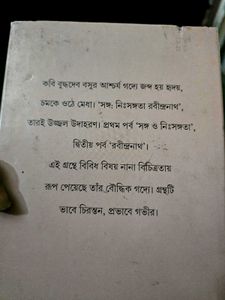 কবি বুদ্ধদেব বসুর আশ্চর্য গদ্যে জব্দ হয় হৃদয়,
চমকে ওঠে মেধা। ‘সঙ্গ: নিঃসঙ্গতা রবীন্দ্রনাথ’,
তারই উজ্জ্বল উদাহরণ। প্রথম পর্ব ‘সঙ্গ ও নিঃসঙ্গতা’,
দ্বিতীয় পর্ব ‘রবীন্দ্রনাথ’।
এই গ্রন্থে বিবিধ বিষয় নানা বিচিত্রতায়
রূপ পেয়েছে তাঁর বৌদ্ধিক গদ্যে। গ্রন্থটি
ভাবে চিরন্তন, প্রভাবে গভীর।